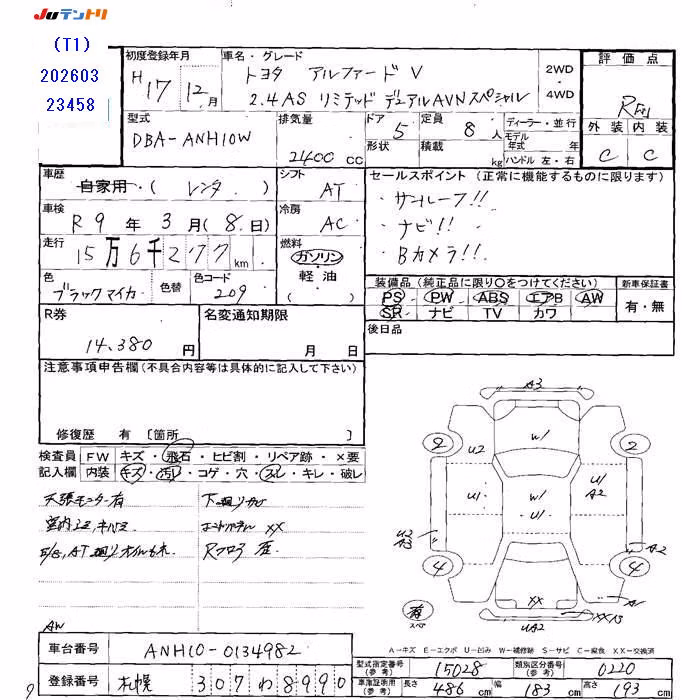 Juテントリ
(T1)
202603
23458
初度登録年月
H17 12月
車名・グレード
トヨタ アルファード V
2.4AS リミテッド デュアルAVN スペシャル
2WD
4WD
評価点
外装 内装
C C
型式
DBA-ANH10W
排気量
2400 cc
ドア 5
形状
定員 8 人
積載 kg
ディーラー・並行
モデル年式 年
ハンドル 左・右
車歴
自家用・( レンタ )
シフト
AT
車検
R 9 年 3 月 ( 8 日)
冷房
AC
走行
15万6千277 km
燃料
ガソリン
軽・油
( )
色
ブラックマイカ
色替
色コード
209
セールスポイント (正常に機能するものに限ります)
・サンルーフ!!
・ナビ!!
・Bカメラ!!
装備品 (純正品に限り〇をつけてください)
PS PW ABS エアB AW
SR ナビ TV カワ
新車保証書
有・無
後日品
R券
14,380 円
名変通知期限
月 日
注意事項申告欄 (不具合内容等は具体的に記入して下さい)
修復歴 有 〔箇所 〕
検査員記入欄
FW キズ・飛石・ヒビ割・リペア跡・×要
内装 キズ・汚れ・コゲ・穴・スレ・キレ・破レ
天張モニター有
下廻りサビ
XX
A3
2
U2
W/
2
U/
W/
U/
U/
A2
U2
A3
4
4
A2
XX
UA2
有
スペア
A-キズ E-エクボ U-凹み W-補修跡 S-サビ C-腐食 XX-交換済
AW
車台番号
ANH10-0134982
登録番号
札幌 307 わ 8990
型式指定番号 (参考)
15028
類別区分番号 (参考)
0220
車庫証明用 (参考)
長さ 486 cm 幅 183 cm 高さ 193 cm